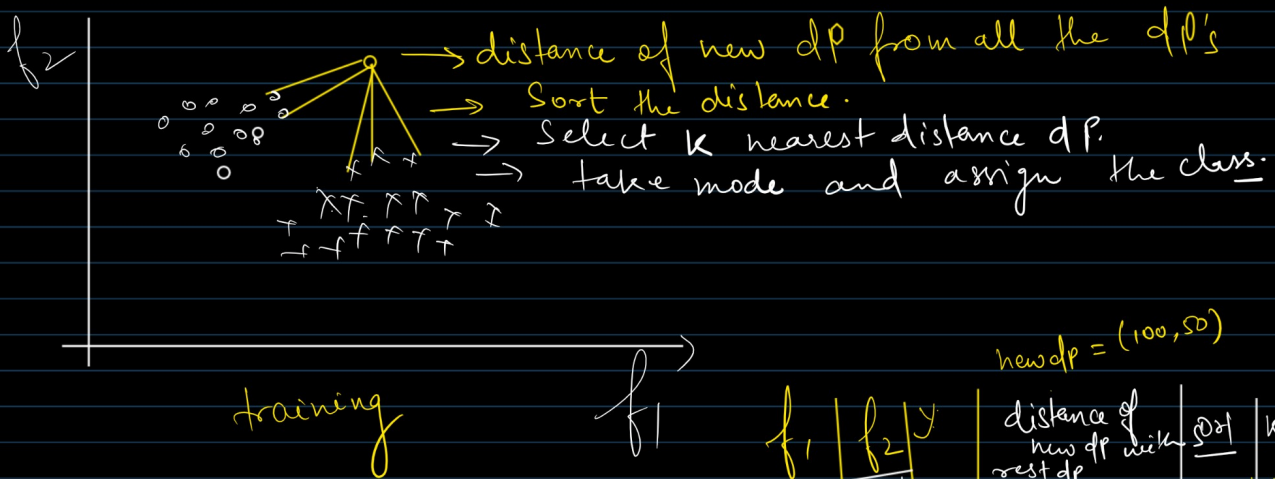 f2
→ distance of new dp from all the dp's
→ Sort the distance.
→ Select K nearest distance dp.
→ take mode and assign the class.
newdp = (100, 50)
training
f1
f1 | f2 | y | distance of new dp with rest dp | sort | K